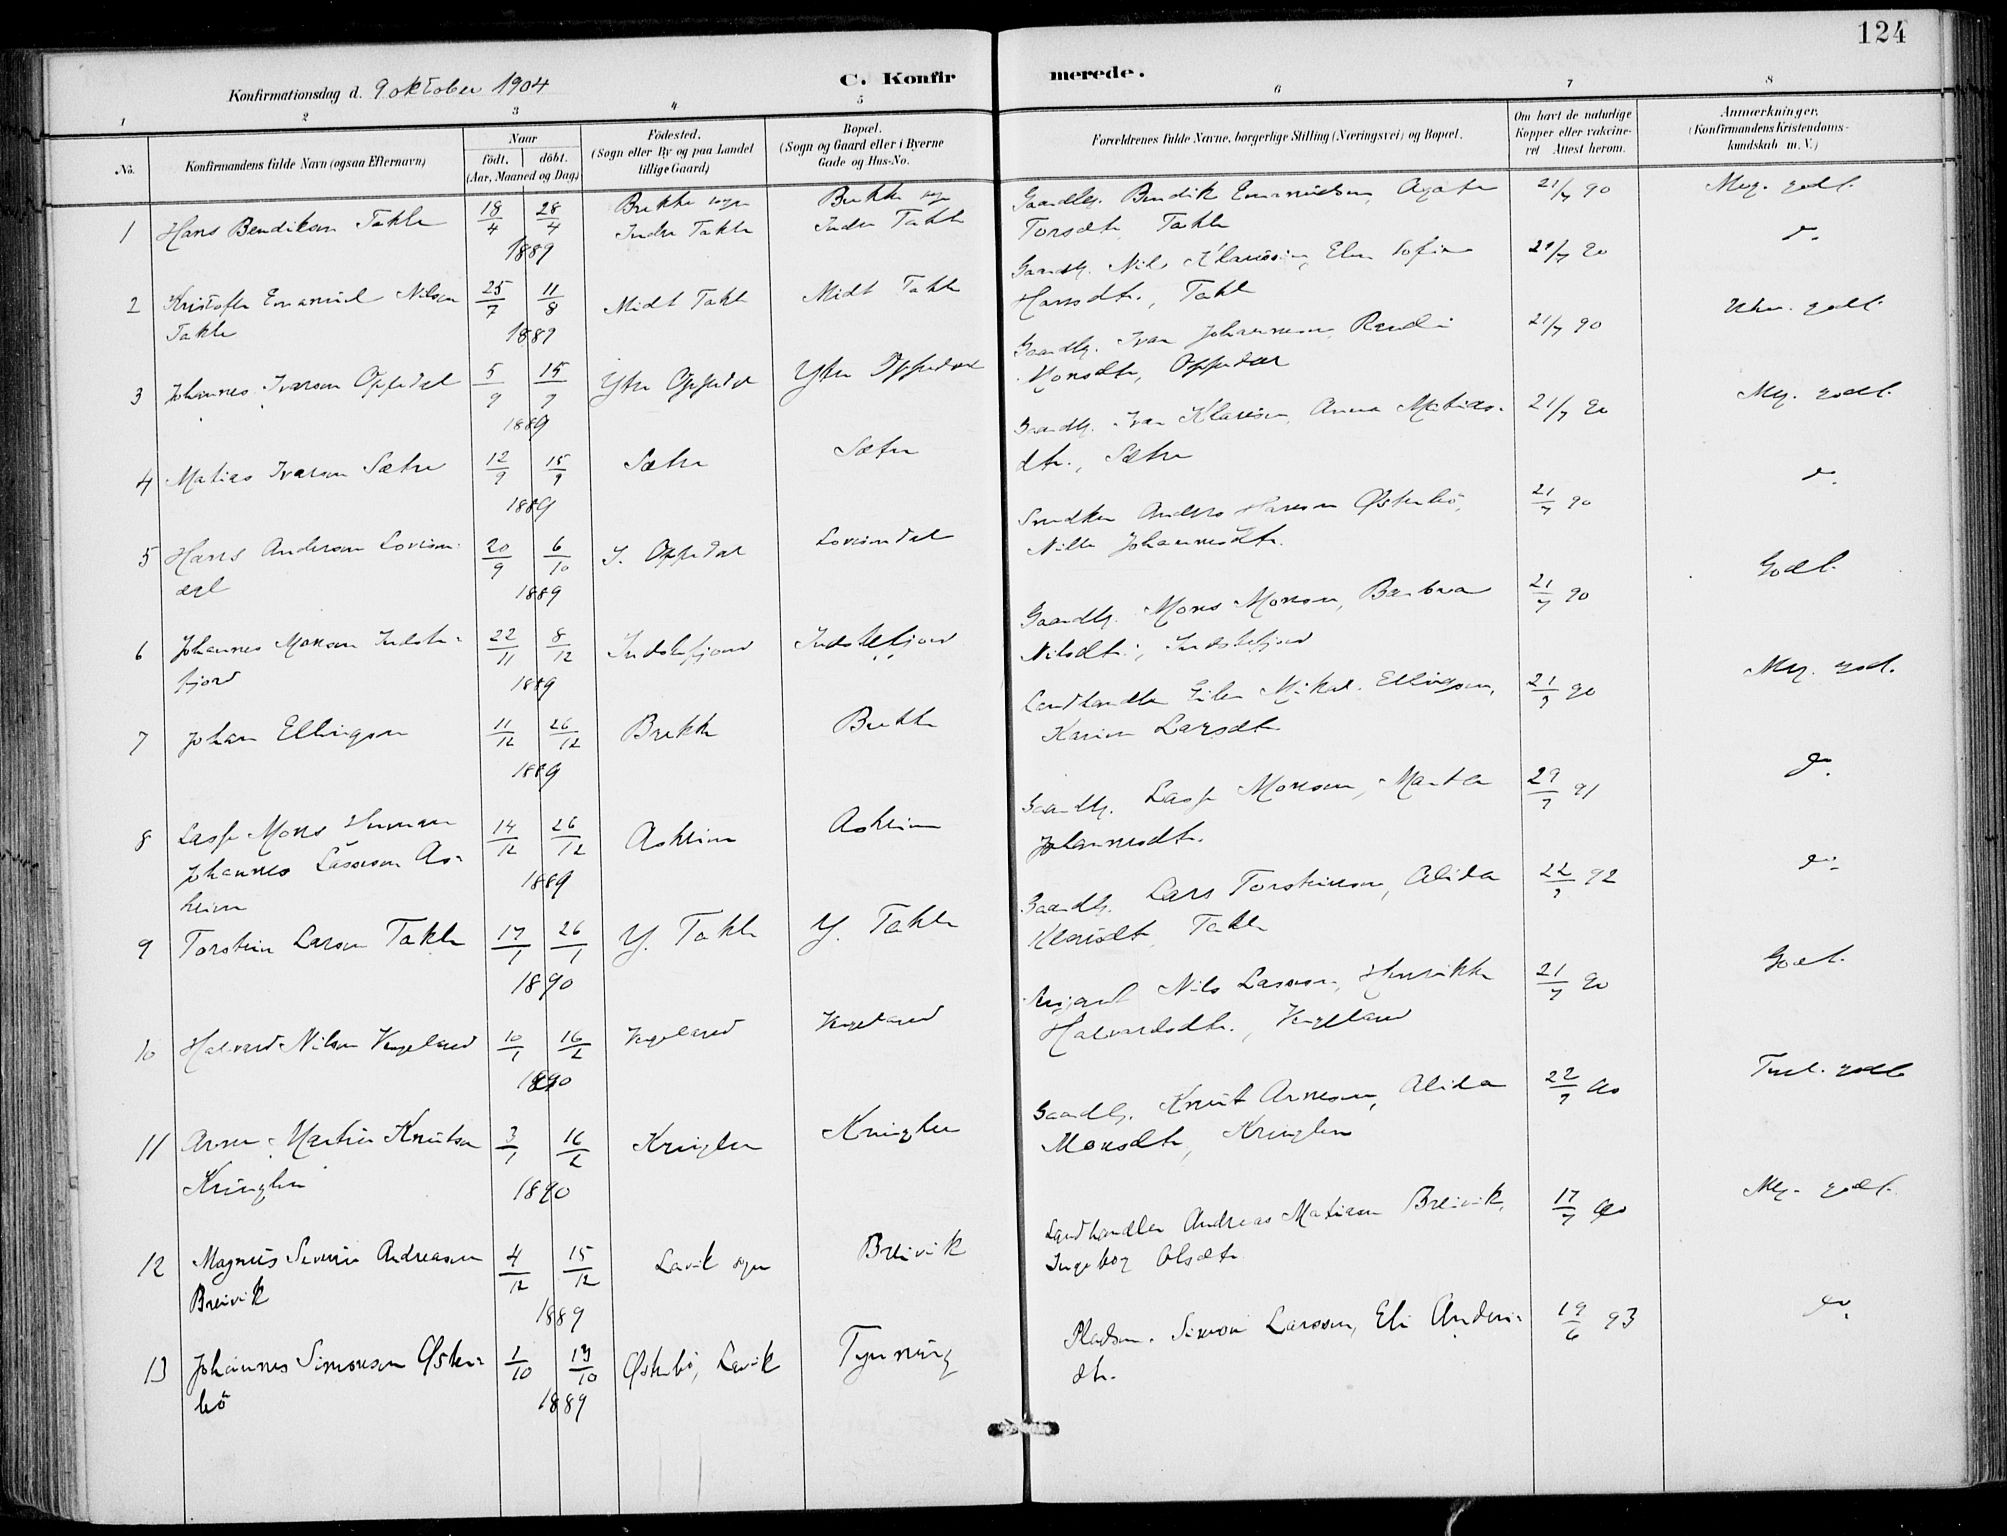 124
Konfirmationsdag d. 9 oktober 1904
C. Konfirmerede.
1 2 3 4 5 6 7 8
No.
Konfirmandens fulde Navn (ogsaa Efternavn)
Naar
födt. döbt.
(Aar, Maaned og Dag)
Födested.
(Sogn eller By og paa Landet
tillige Gaard)
Bopæl.
(Sogn og Gaard eller i Byerne
Gade og Hus-No.
Forældrenes fulde Navne, borgerlige Stilling (Næringsvei) og Bopæl.
Om havt de naturlige
Kopper eller vakcine-
ret Attest herom.
Anmærkninger.
(Konfirmandens Kristendoms-
kundskab m. V.)
1 Hans Bendikson Takle 18/4 28/4 1889 Brekke sogn Indre Takle Brekke sogn Indre Takle
Gaardbr. Bendik Emanuelsen, Agate
Torsdtr. Takle 21/7 90 Meg. godt.
2 Kristofer Emanuel Nilsen
Takle 25/7 11/8 1889 Midt Takle Midt Takle
Gaardbr. Nils Klausson, Elen Sofie
Hansdtr., Takle 21/7 90 do.
3 Johannes Ivarson Oppedal 5/9 15/9 1889 Ytre Oppedal Ytre Oppedal
Gaardbr. Ivar Johanneson, Randi
Monsdtr, Oppedal 21/7 90 Ukn. godt.
4 Matias Ivarson Sætre 12/9 15/9 1889 Sætre Sætre
Gaardbr. Ivar Klausson, Anna Matias-
dtr., Sætre 21/7 90 Meg. godt.
5 Hans Anderson Lovisen-
dal 20/9 6/10 1889 I. Oppedal Lovisendal
Snedker Anders Hanson Østerbö,
Nille Johannesdtr. 21/7 90 do.
6 Johannes Monson Indste-
fjord 22/11 8/12 1889 Indstefjord Indstefjord
Gaardbr. Mons Monson, Barbra
Nilsdtr., Indstefjord 21/7 90 Godt.
7 Johan Ellingson 11/12 26/12 1889 Brekke Brekke
Landhandler Eiler Mikal Ellingson,
Karine Larsdtr 21/7 90 Meg. godt.
8 Lasse Mons Herman
Johannes Lasseson As-
heim 14/12 26/12 1889 Asheim Asheim
Gaardbr. Lasse Monson, Marta
Johannesdtr. 29/7 91 do.
9 Torstein Larson Takle 17/1 26/1 1890 Y. Takle Y. Takle
Gaardbr. Lars Torsteinson, Alida
Klausdtr, Takle 22/7 92 do.
10 Halvard Nilson Vengeland 10/1 16/2 1890 Vengeland Vengeland
Nils Lasseson, Henrikke
Halvardsdtr., Vengeland 21/7 90 Godt.
11 Arne Martin Knutson
Kringlen 3/1 16/2 1890 Kringlen Kringlen
Gaardbr. Knut Arneson, Alida
Monsdtr, Kringlen 22/7 90 Tem. godt
12 Magnus Severin Andreason
Breivik 4/12 15/12 1889 Lavik sogn Breivik
Landhandler Andreas Matiason Breivik,
Ingeborg Olsdtr 17/7 90 Meg. godt.
13 Johannes Simonson Øster-
bö 1/10 13/10 1889 Østerbö, Lavik Tynning
Pladsm. Simon Larsson, Eli Anders-
dtr. 19/6 93 do.